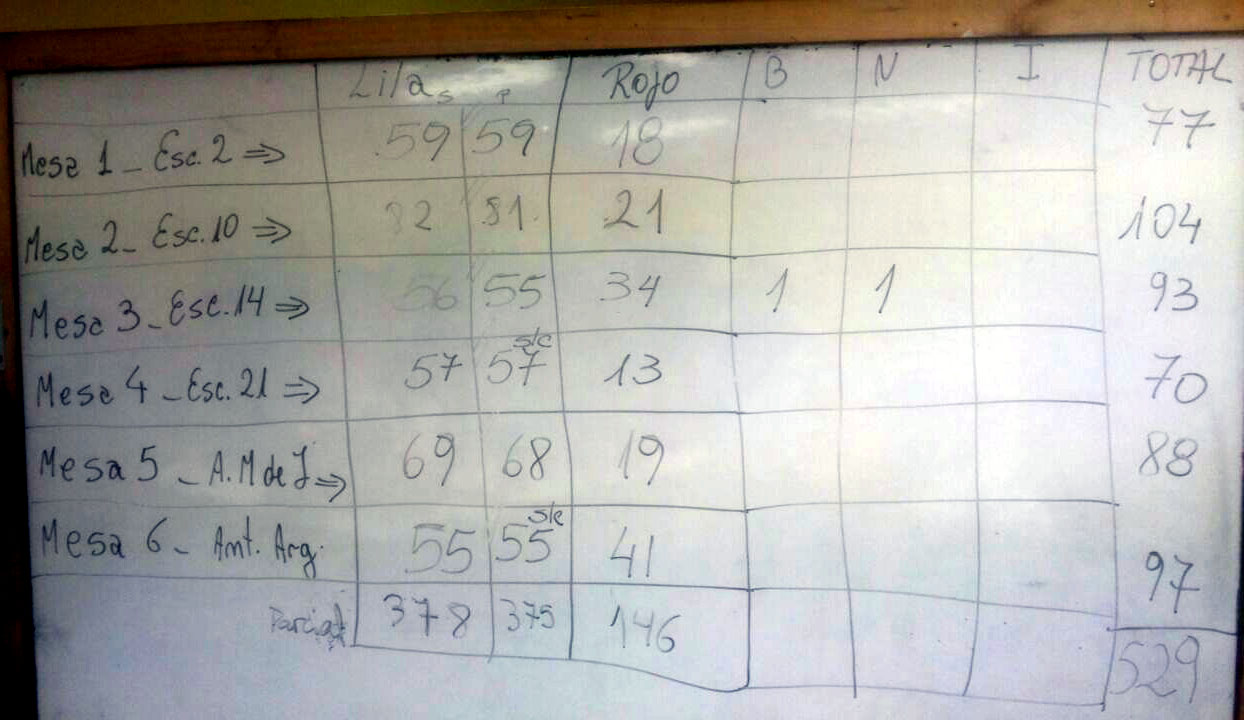 Lila s P Rojo B N I TOTAL
Mesa 1 - Esc. 2 ⇒ 59 59 18 77
Mesa 2 - Esc. 10 ⇒ 82 81 21 104
Mesa 3 - Esc. 14 ⇒ 56 55 34 1 1 93
Mesa 4 - Esc. 21 ⇒ 57 57 s/c 13 70
Mesa 5 - A. M de J ⇒ 69 68 19 88
Mesa 6 - Ant. Arg. 55 55 41 97
Parcial 378 375 146 529